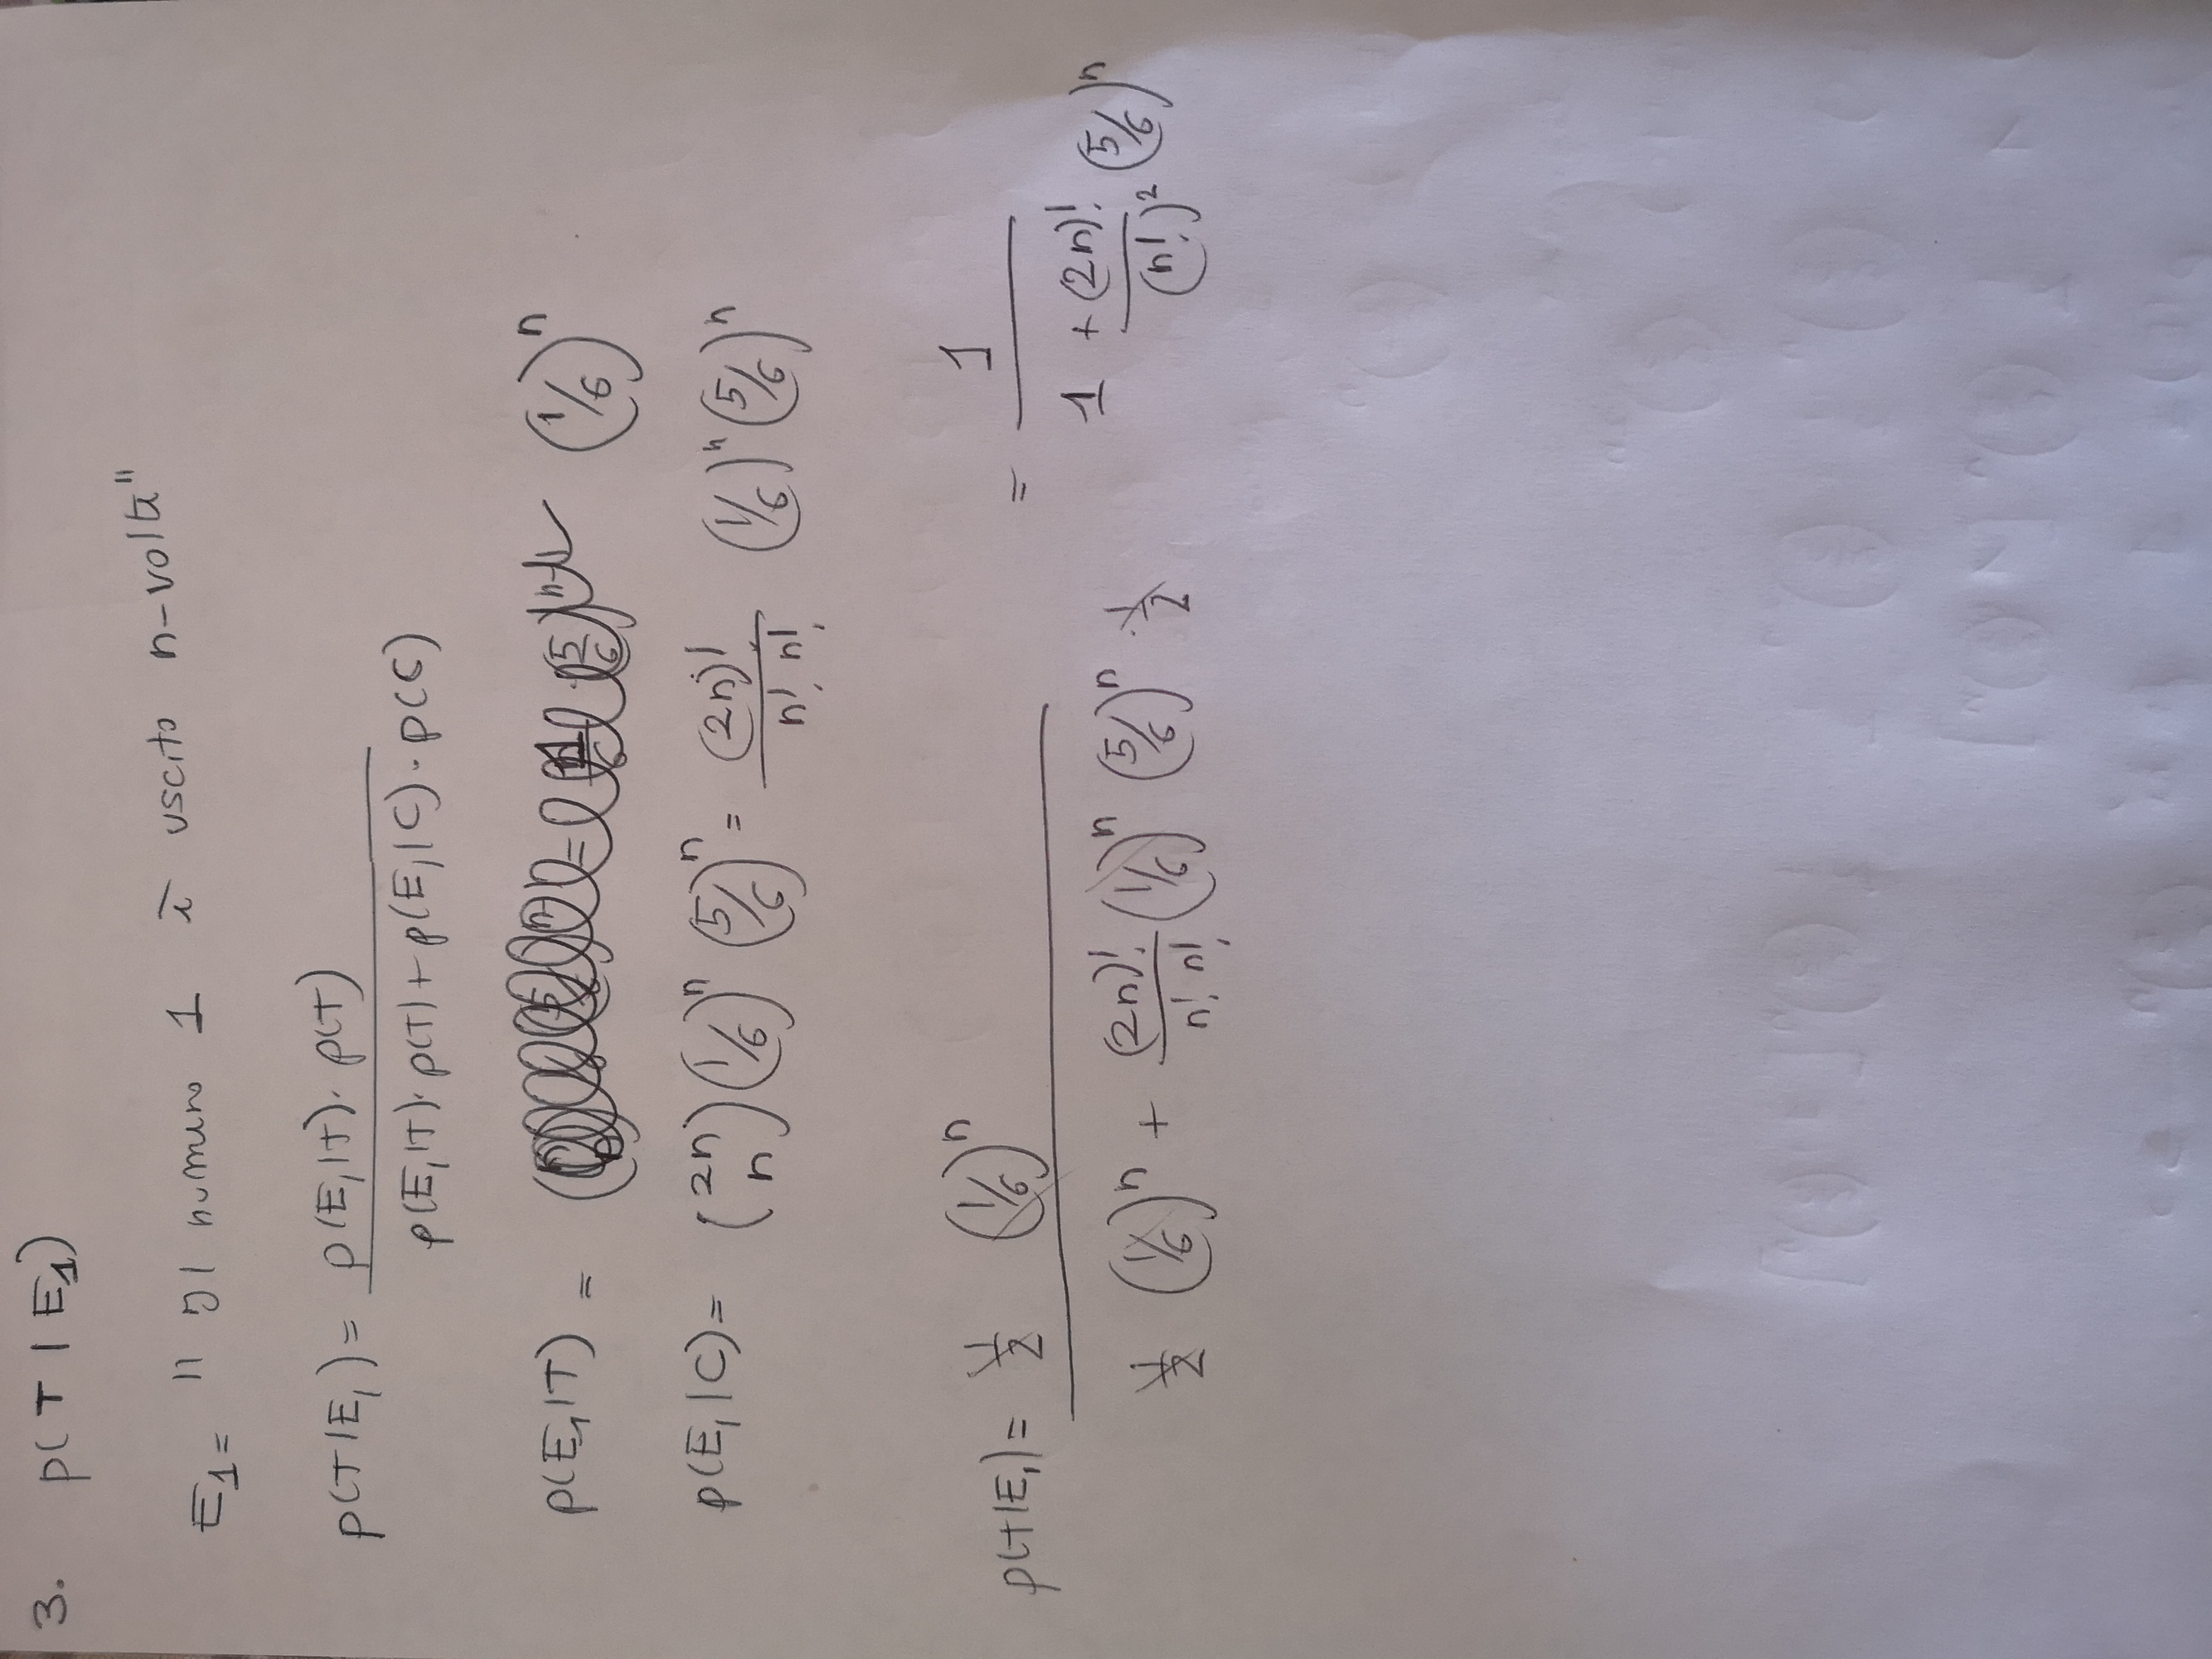 3. p(T|E₁)
E₁= "Il numero 1 è uscito n-volte"
p(T|E₁)= p(E₁|T)·p(T) / p(E₁|T)·p(T)+p(E₁|C)·p(C)
p(E₁|T) = (1/6)ⁿ
p(E₁|C)= (2n n)(1/6)ⁿ(5/6)ⁿ = (2n)!/n! n! (1/6)ⁿ(5/6)ⁿ
p(T|E₁)= 1/2 (1/6)ⁿ / 1/2 (1/6)ⁿ + (2n)!/n! n! (1/6)ⁿ (5/6)ⁿ · 1/2 = 1 / 1 + (2n)!/(n!)² (5/6)ⁿ